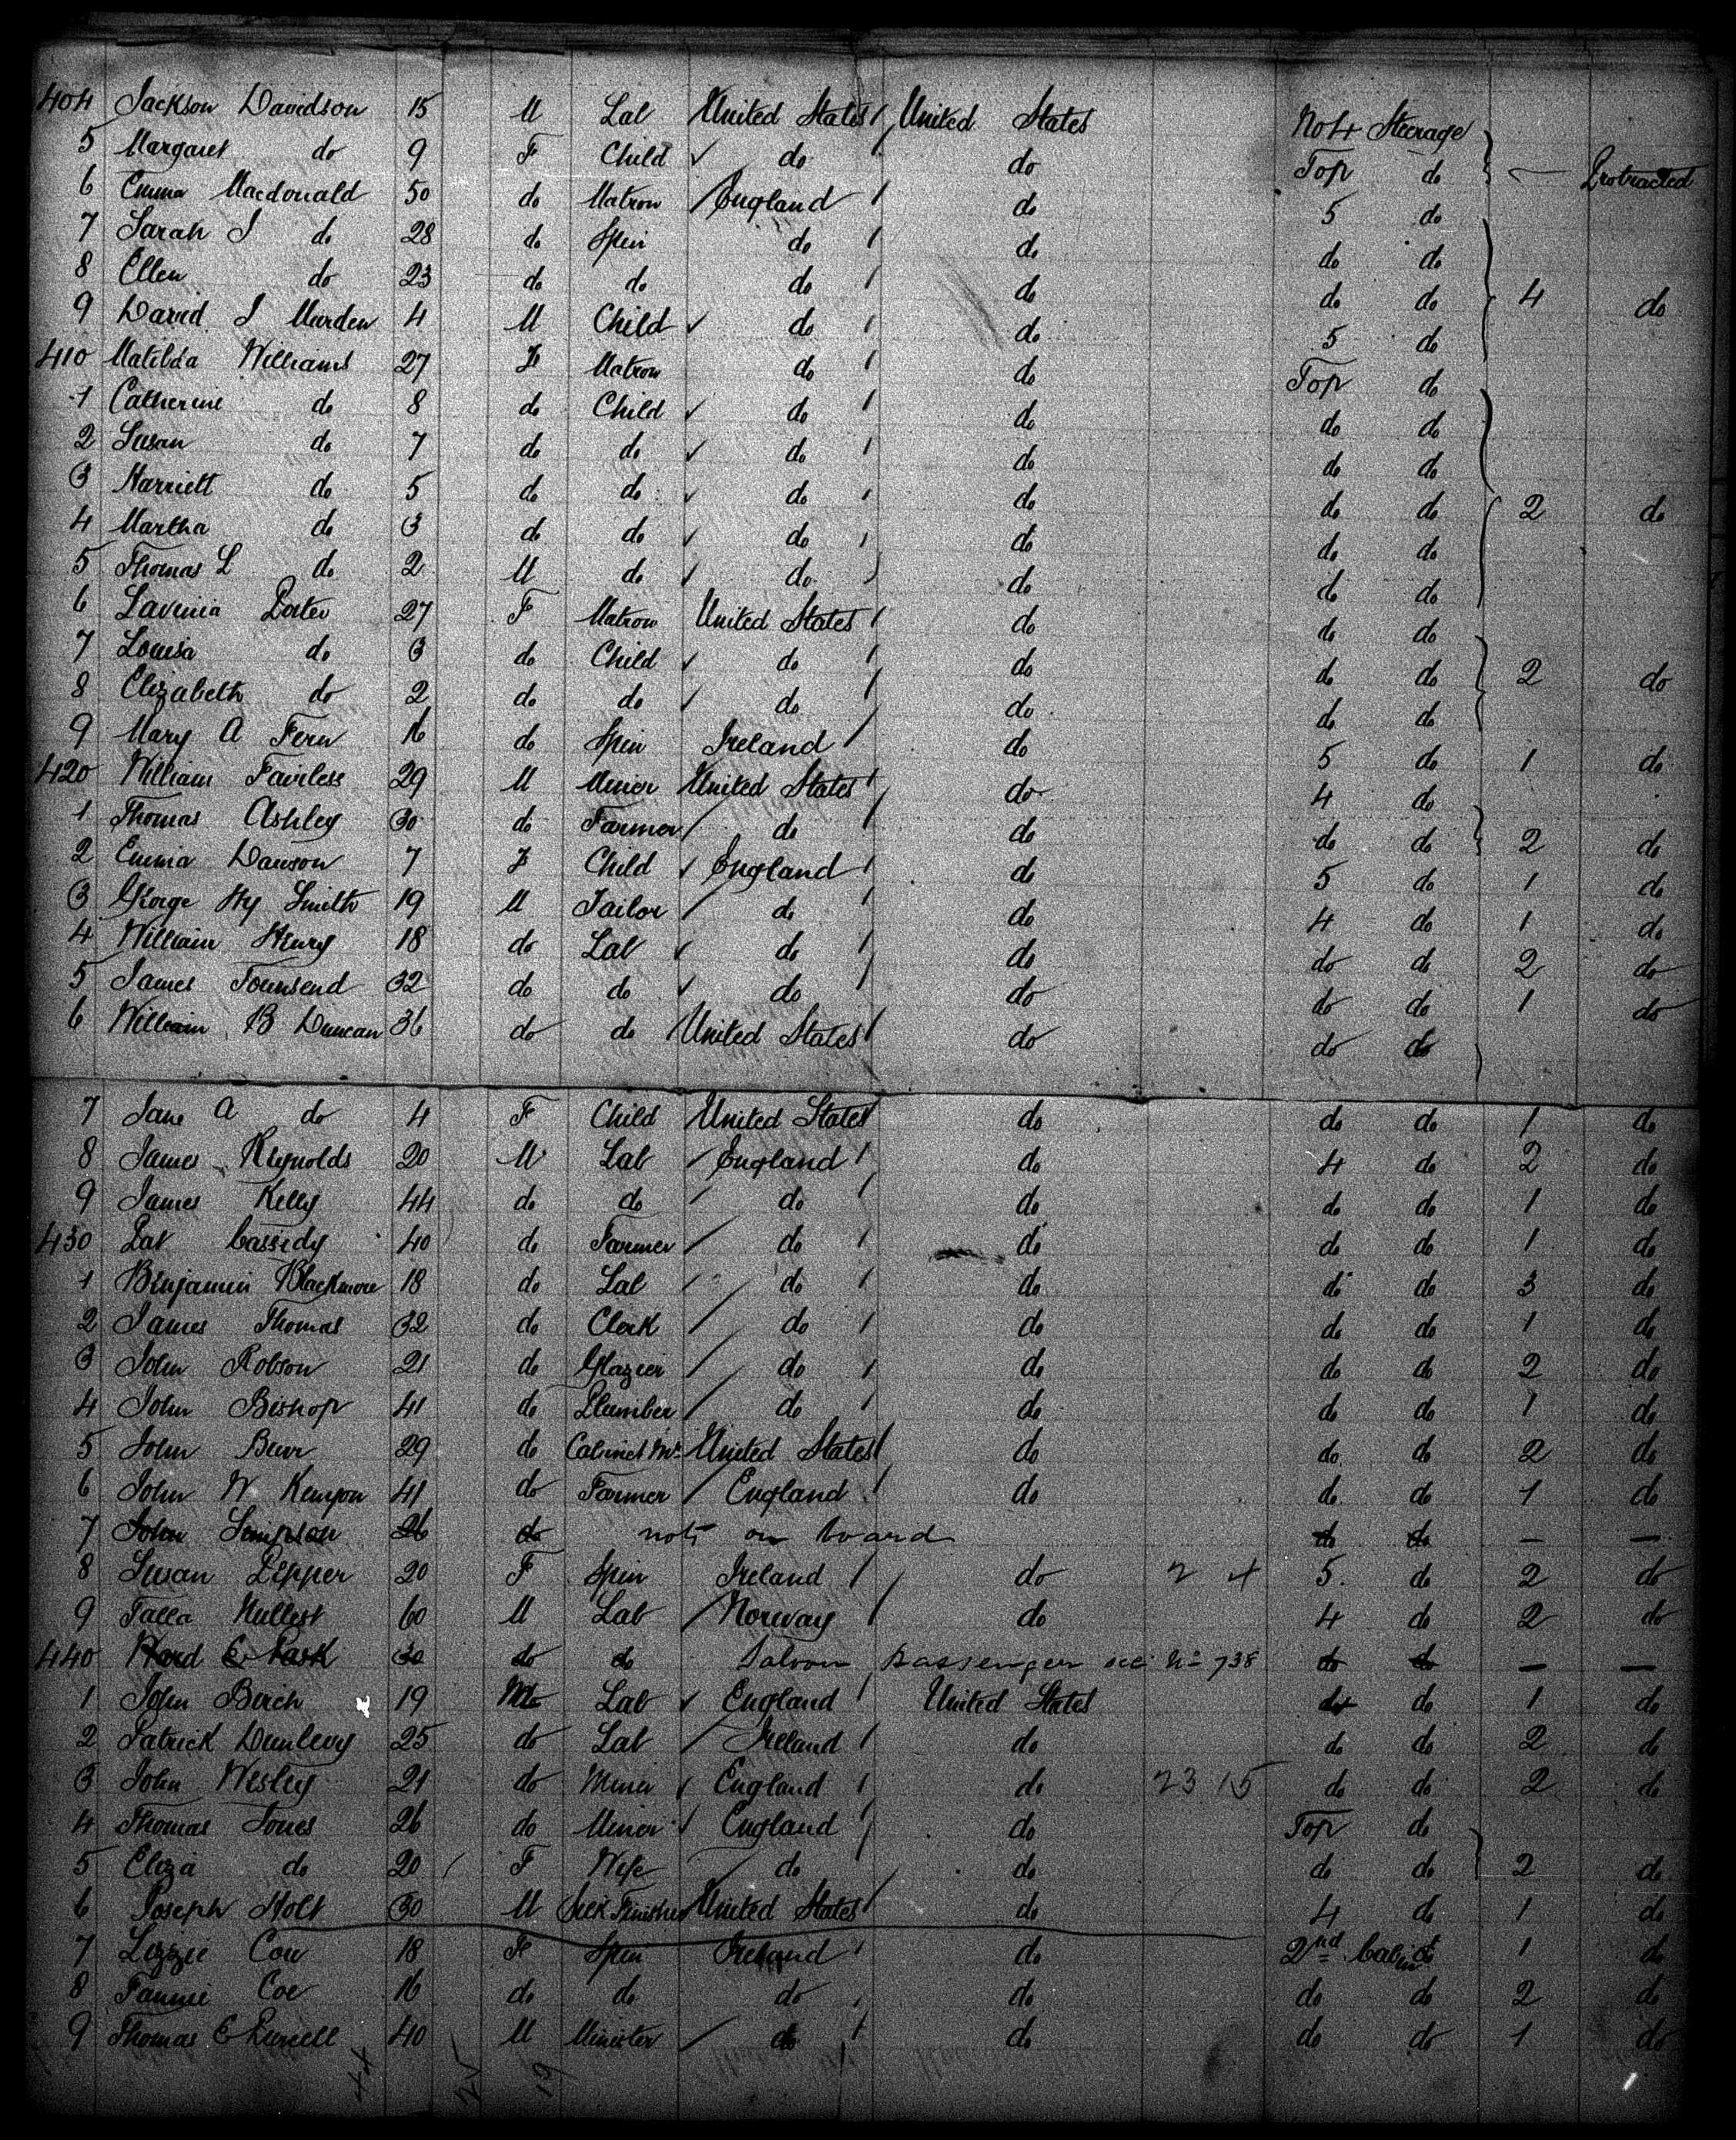 404 Jackson Davidson 15 M Lab United States United States No 4 Steerage
5 Margaret do 9 F Child do do Top do — Protracted
6 Emma Macdonald 50 do Matron England do 5 do
7 Sarah J do 28 do Spin do do do do
8 Ellen do 23 do do do do do do 4 do
9 David J Murden 4 M Child do do 5 do
410 Matilda Williams 27 F Matron do do Top do
1 Catherine do 8 do Child do do do do
2 Susan do 7 do do do do do do
3 Harriett do 5 do do do do do do 2 do
4 Martha do 3 do do do do do do
5 Thomas L do 2 M do do do do do
6 Lavinia Porter 27 F Matron United States do do do
7 Louisa do 3 do Child do do do do 2 do
8 Elizabeth do 2 do do do do do do
9 Mary A Fern 16 do Spin Ireland do 5 do 1 do
420 William Fairless 29 M Miner United States do 4 do
1 Thomas Ashley 30 do Farmer do do do do 2 do
2 Emma Dawson 7 F Child England do 5 do 1 do
3 George Hy Smith 19 M Tailor do do 4 do 1 do
4 William Henry 18 do Lab do do do do 2 do
5 James Townsend 32 do do do do do do 1 do
6 William B Duncan 36 do do United States do do do
7 Jane A do 4 F Child United States do do do 1 do
8 James Reynolds 20 M Lab England do 4 do 2 do
9 James Kelly 44 do do do do do do 1 do
430 Pat Cassidy 40 do Farmer do do do do 1 do
1 Benjamin Blackmore 18 do Lab do do do do 3 do
2 James Thomas 32 do Clerk do do do do 1 do
3 John Robson 21 do Glazier do do do do 2 do
4 John Bishop 41 do Plumber do do do do 1 do
5 John Burr 29 do Cabinet Mr United States do do do 2 do
6 John W Kenyon 41 do Farmer England do do do 1 do
7 John Simpson 26 do not on board do do — —
8 Susan Pepper 20 F Spin Ireland do 2 4 5 do 2 do
9 Talla 60 M Lab Norway do 4 do 2 do
440 30 do do Saloon Passenger see No 738 do do — —
1 John Birch 19 M Lab England United States do do 1 do
2 Patrick Dunlevy 25 do Lab Ireland do do do 2 do
3 John Wesley 21 do Miner England do 23 15 do do 2 do
4 Thomas Jones 26 do Miner England do Top do
5 Eliza do 20 F Wife do do do do 2 do
6 Joseph Holt 30 M Silk Finisher United States do 4 do 1 do
7 Lizzie Cow 18 F Spin Ireland do 2nd Cabin 1 do
8 Fannie Coe 16 do do do do do do 2 do
9 Thomas C 40 M Minister do do do do 1 do